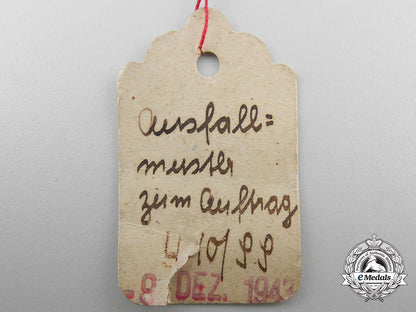 Ausfall=
muster
zum Auftrag
U 10/SS
- 8. DEZ. 1943
eMedals